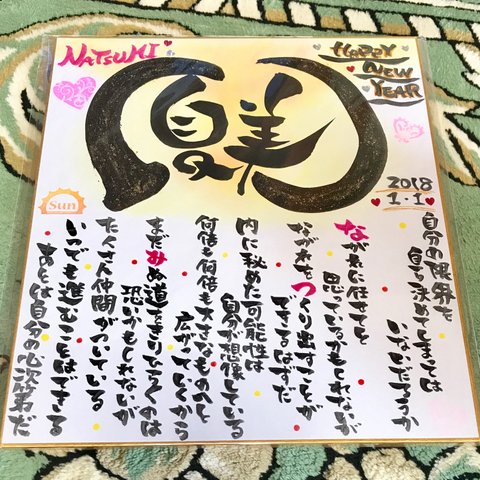 NATSUKI
Happy
New
Year
夏美
2018
1・1
Sun
自分の限界を
自分で決めてしまっては
いないだろうか
ながれに任せようと
思っているかもしれないが
ながれをつくり出すことが
できるはずだ
内に秘めた可能性は
自分が想像している
何倍も何倍も大きなものへと
広がっていくから
まだみぬ道をきりひらくのは
恐いかもしれないが
たくさん仲間がついている
いつでも進むことはできる
あとは自分の心次第だ